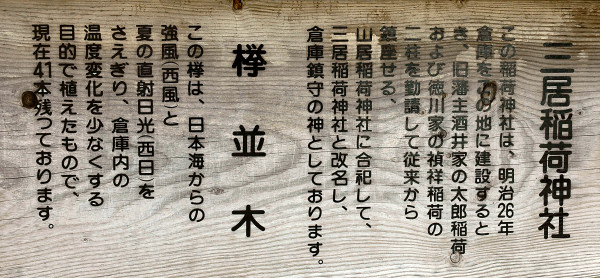 三居稲荷神社
この稲荷神社は、明治26年
倉庫をこの地に建設すると
き、旧藩主酒井家の太郎稲荷
および徳川家の禎祥稲荷の
二社を勧請して従来から
鎮座せる、
山居稲荷神社に合祀して、
三居稲荷神社と改名し、
倉庫鎮守の神としております。
欅並木
この欅は、日本海からの
強風(西風)と
夏の直射日光(西日)を
さえぎり、倉庫内の
温度変化を少なくする
目的で植えたもので、
現在41本残つております。